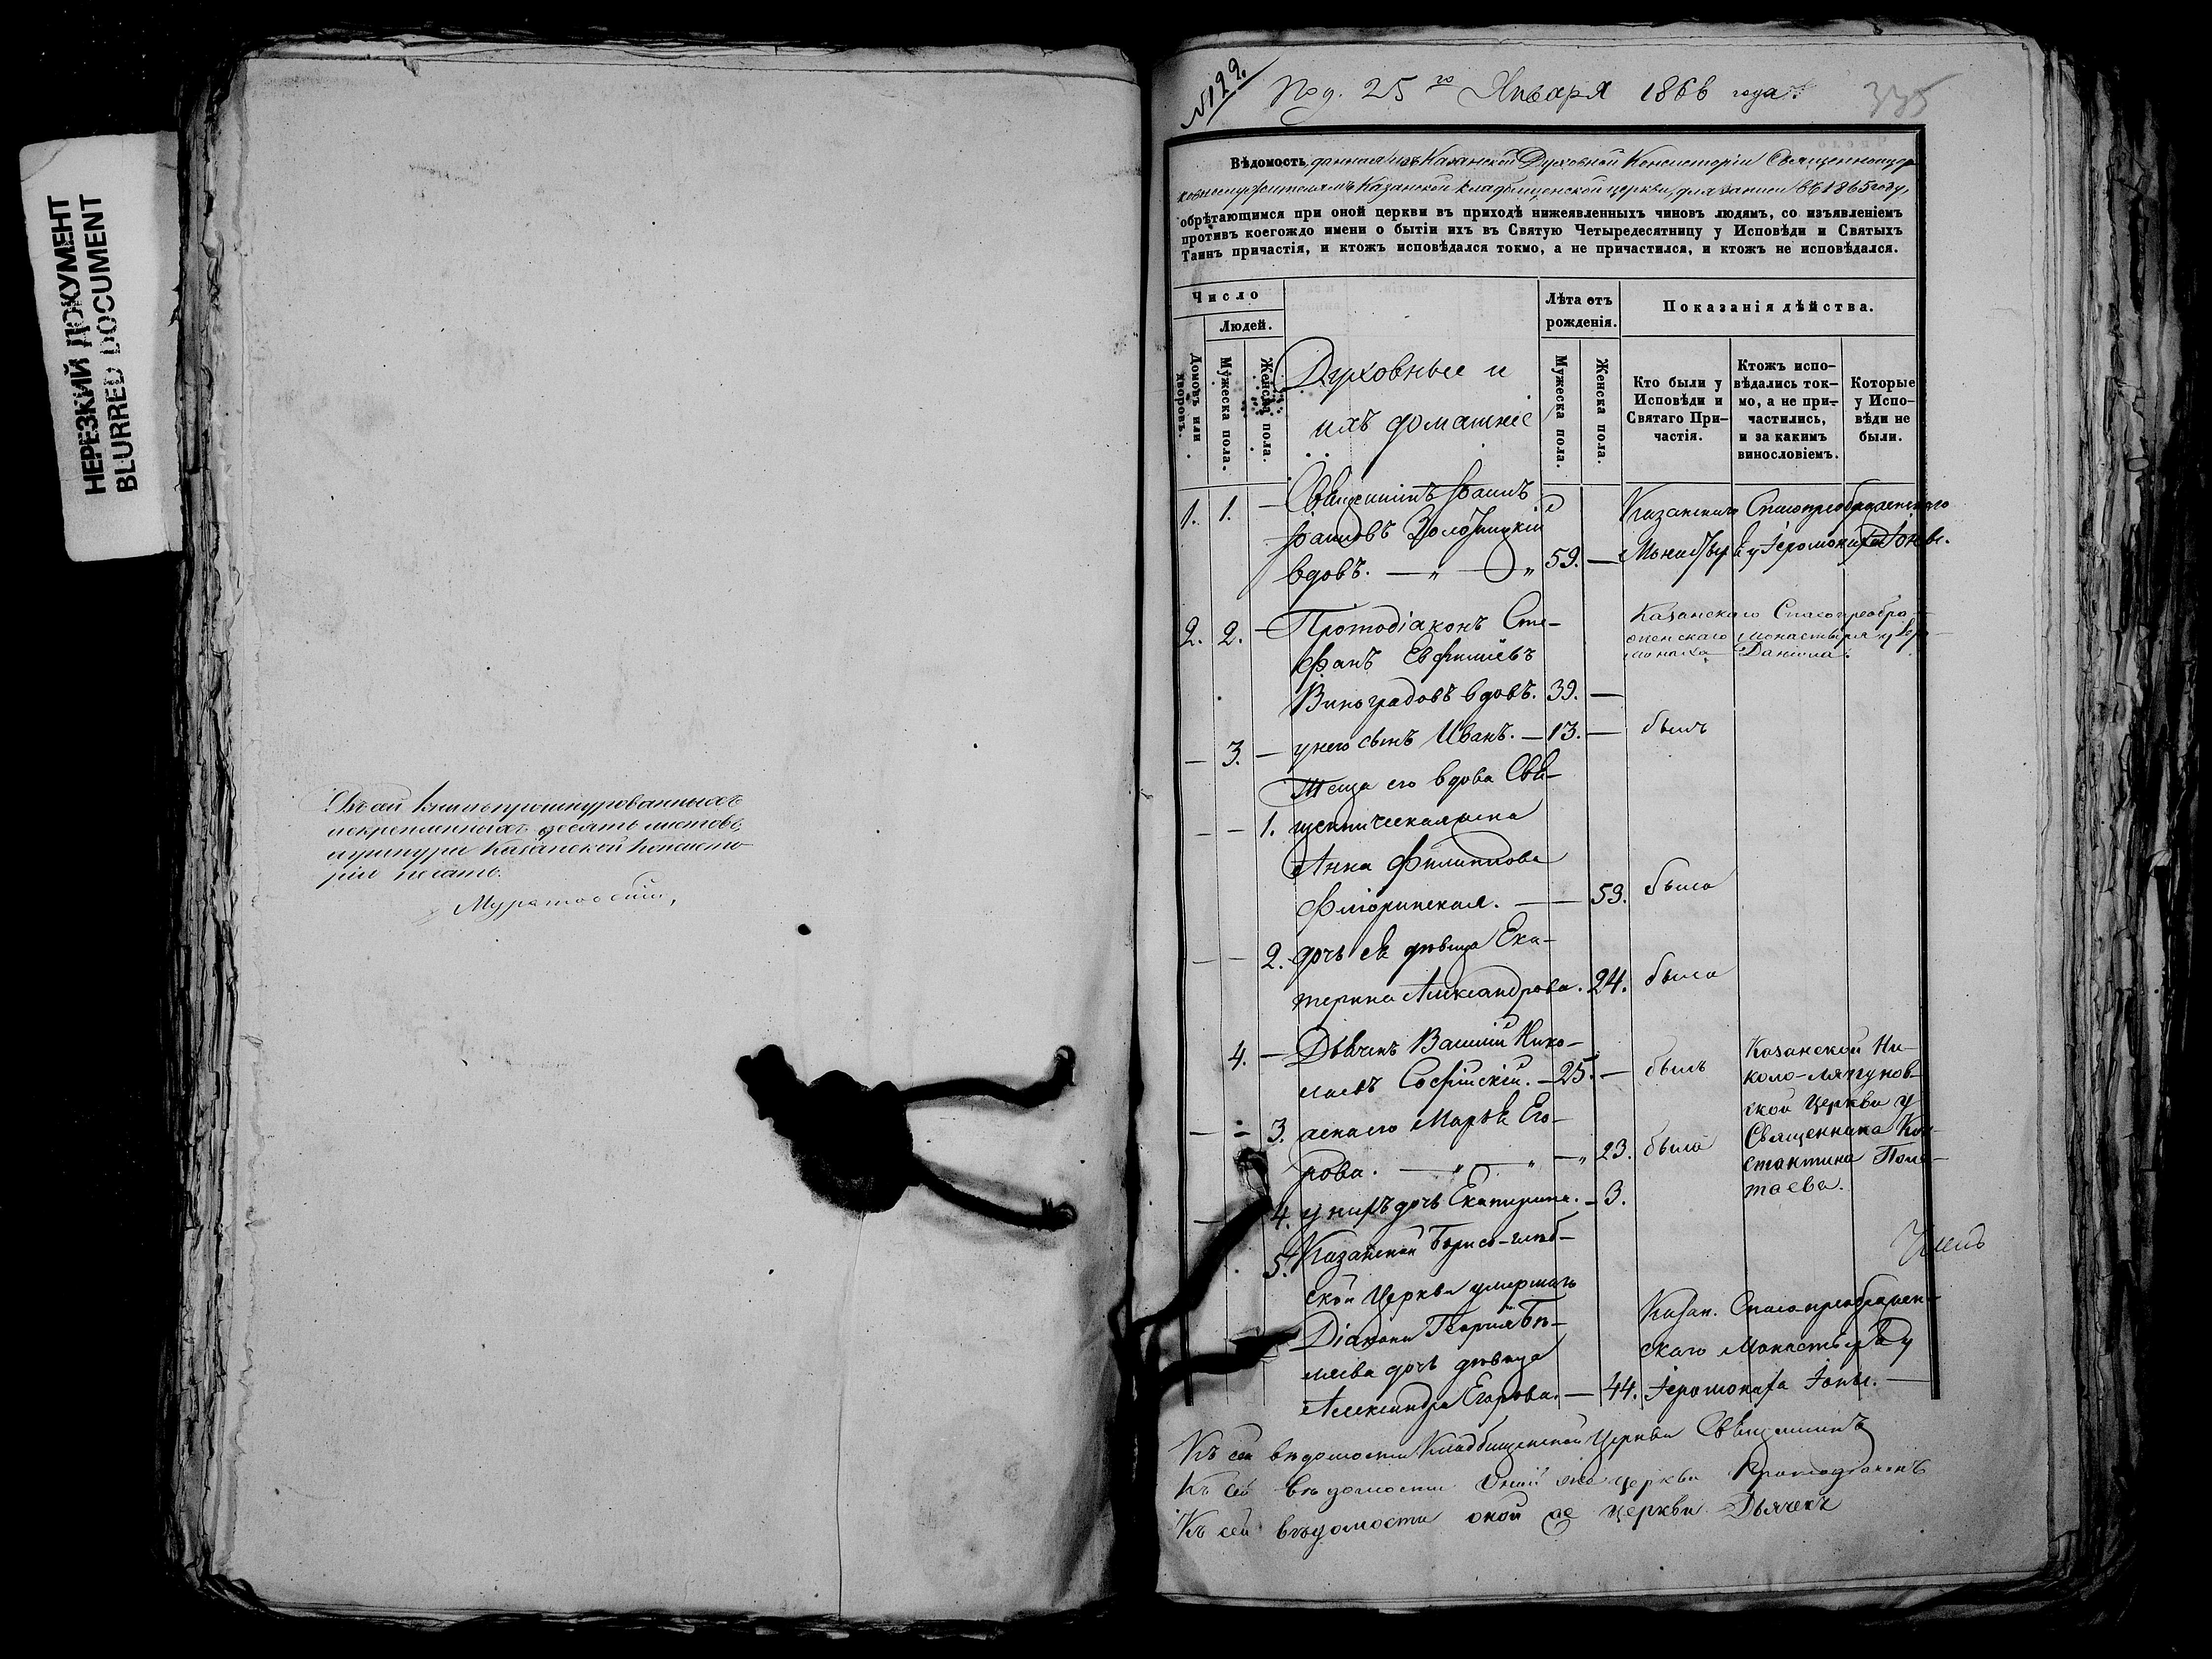 НЕРЕЗКИЙ ДОКУМЕНТ
BLURRED DOCUMENT
книгѣ прошнурованныхъ
и скрепленныхъ десять листовъ,
Казанской Консисто-
ріи печать.
№ 122.
Под. 25го Января 1866 года.
335
Вѣдомость данная изъ Казанской Духовной Консисторіи Священноцер-
ковнослужителямъ Казанской кладбищенской церкви, для записи въ 1865 году,
обрѣтающимся при оной церкви въ приходѣ нижеявленныхъ чиновъ людямъ, со изъявленіемъ
противъ коегождо имени о бытіи ихъ въ Святую Четыредесятницу у Исповѣди и Святыхъ
Таинъ причастія, и ктожъ исповѣдался токмо, а не причастился, и ктожъ не исповѣдался.
Число
Людей.
Домовъ или дворовъ.
Мужеска пола.
Женска пола.
Лѣта отъ
рожденія.
Мужеска пола.
Женска пола.
Показанія дѣйства.
Кто были у
Исповѣди и
Святаго При-
частія.
Ктожъ испо-
вѣдались ток-
мо, а не при-
частились,
и за какимъ
винословіемъ.
Которые
у Испо-
вѣди не
были.
Духовные и
ихъ домашніе
1. 1. — Священникъ Іоаннъ Казанскаго Спасопреображенскаго
Іоанновъ Золотницкій
вдовъ. — „ — „ 59. — Монастыря у Іеромонаха Іоны.
2. 2. — Протодіаконъ Сте- Казанскаго Спасопреобра-
фанъ Евфиміевъ женскаго монастыря у Іеро-
монаха Даніила.
Виноградовъ вдовъ. 39. —
— 3. — у него сынъ Иванъ. — 13. — былъ
Теща его вдова Свя-
— — 1. щенническая жена
Анна Филиппова
Флоринская. — — 59. была
— — 2. дочь ея дѣвица Ека-
терина Александрова. 24. была
4. — Дьячекъ Василій Нико-
лаевъ Софійскій. — 25. — былъ
Казанской Ни-
коло-Ляпунов-
ской Церкви у
Священника Кон-
стантина Пола-
таева.
— — 3. жена его Марья Его-
рова. — „ — „ — „ 23. была
— 4. у нихъ дочь Екатерина. — 3.
5. Казанской Борисо-глеб-
ской Церкви умершаго
Діакона Георгія Бѣ-
ляева дочь дѣвица
Александра Егорова. — 44.
Казан. Спасопреображен-
скаго Монастыря у
Іеромонаха Іоны. —
Къ сей вѣдомости Кладбищенской Церкви Священникъ
Къ сей вѣдомости оной же церкви Протодіаконъ
Къ сей вѣдомости оной же церкви Дьячекъ